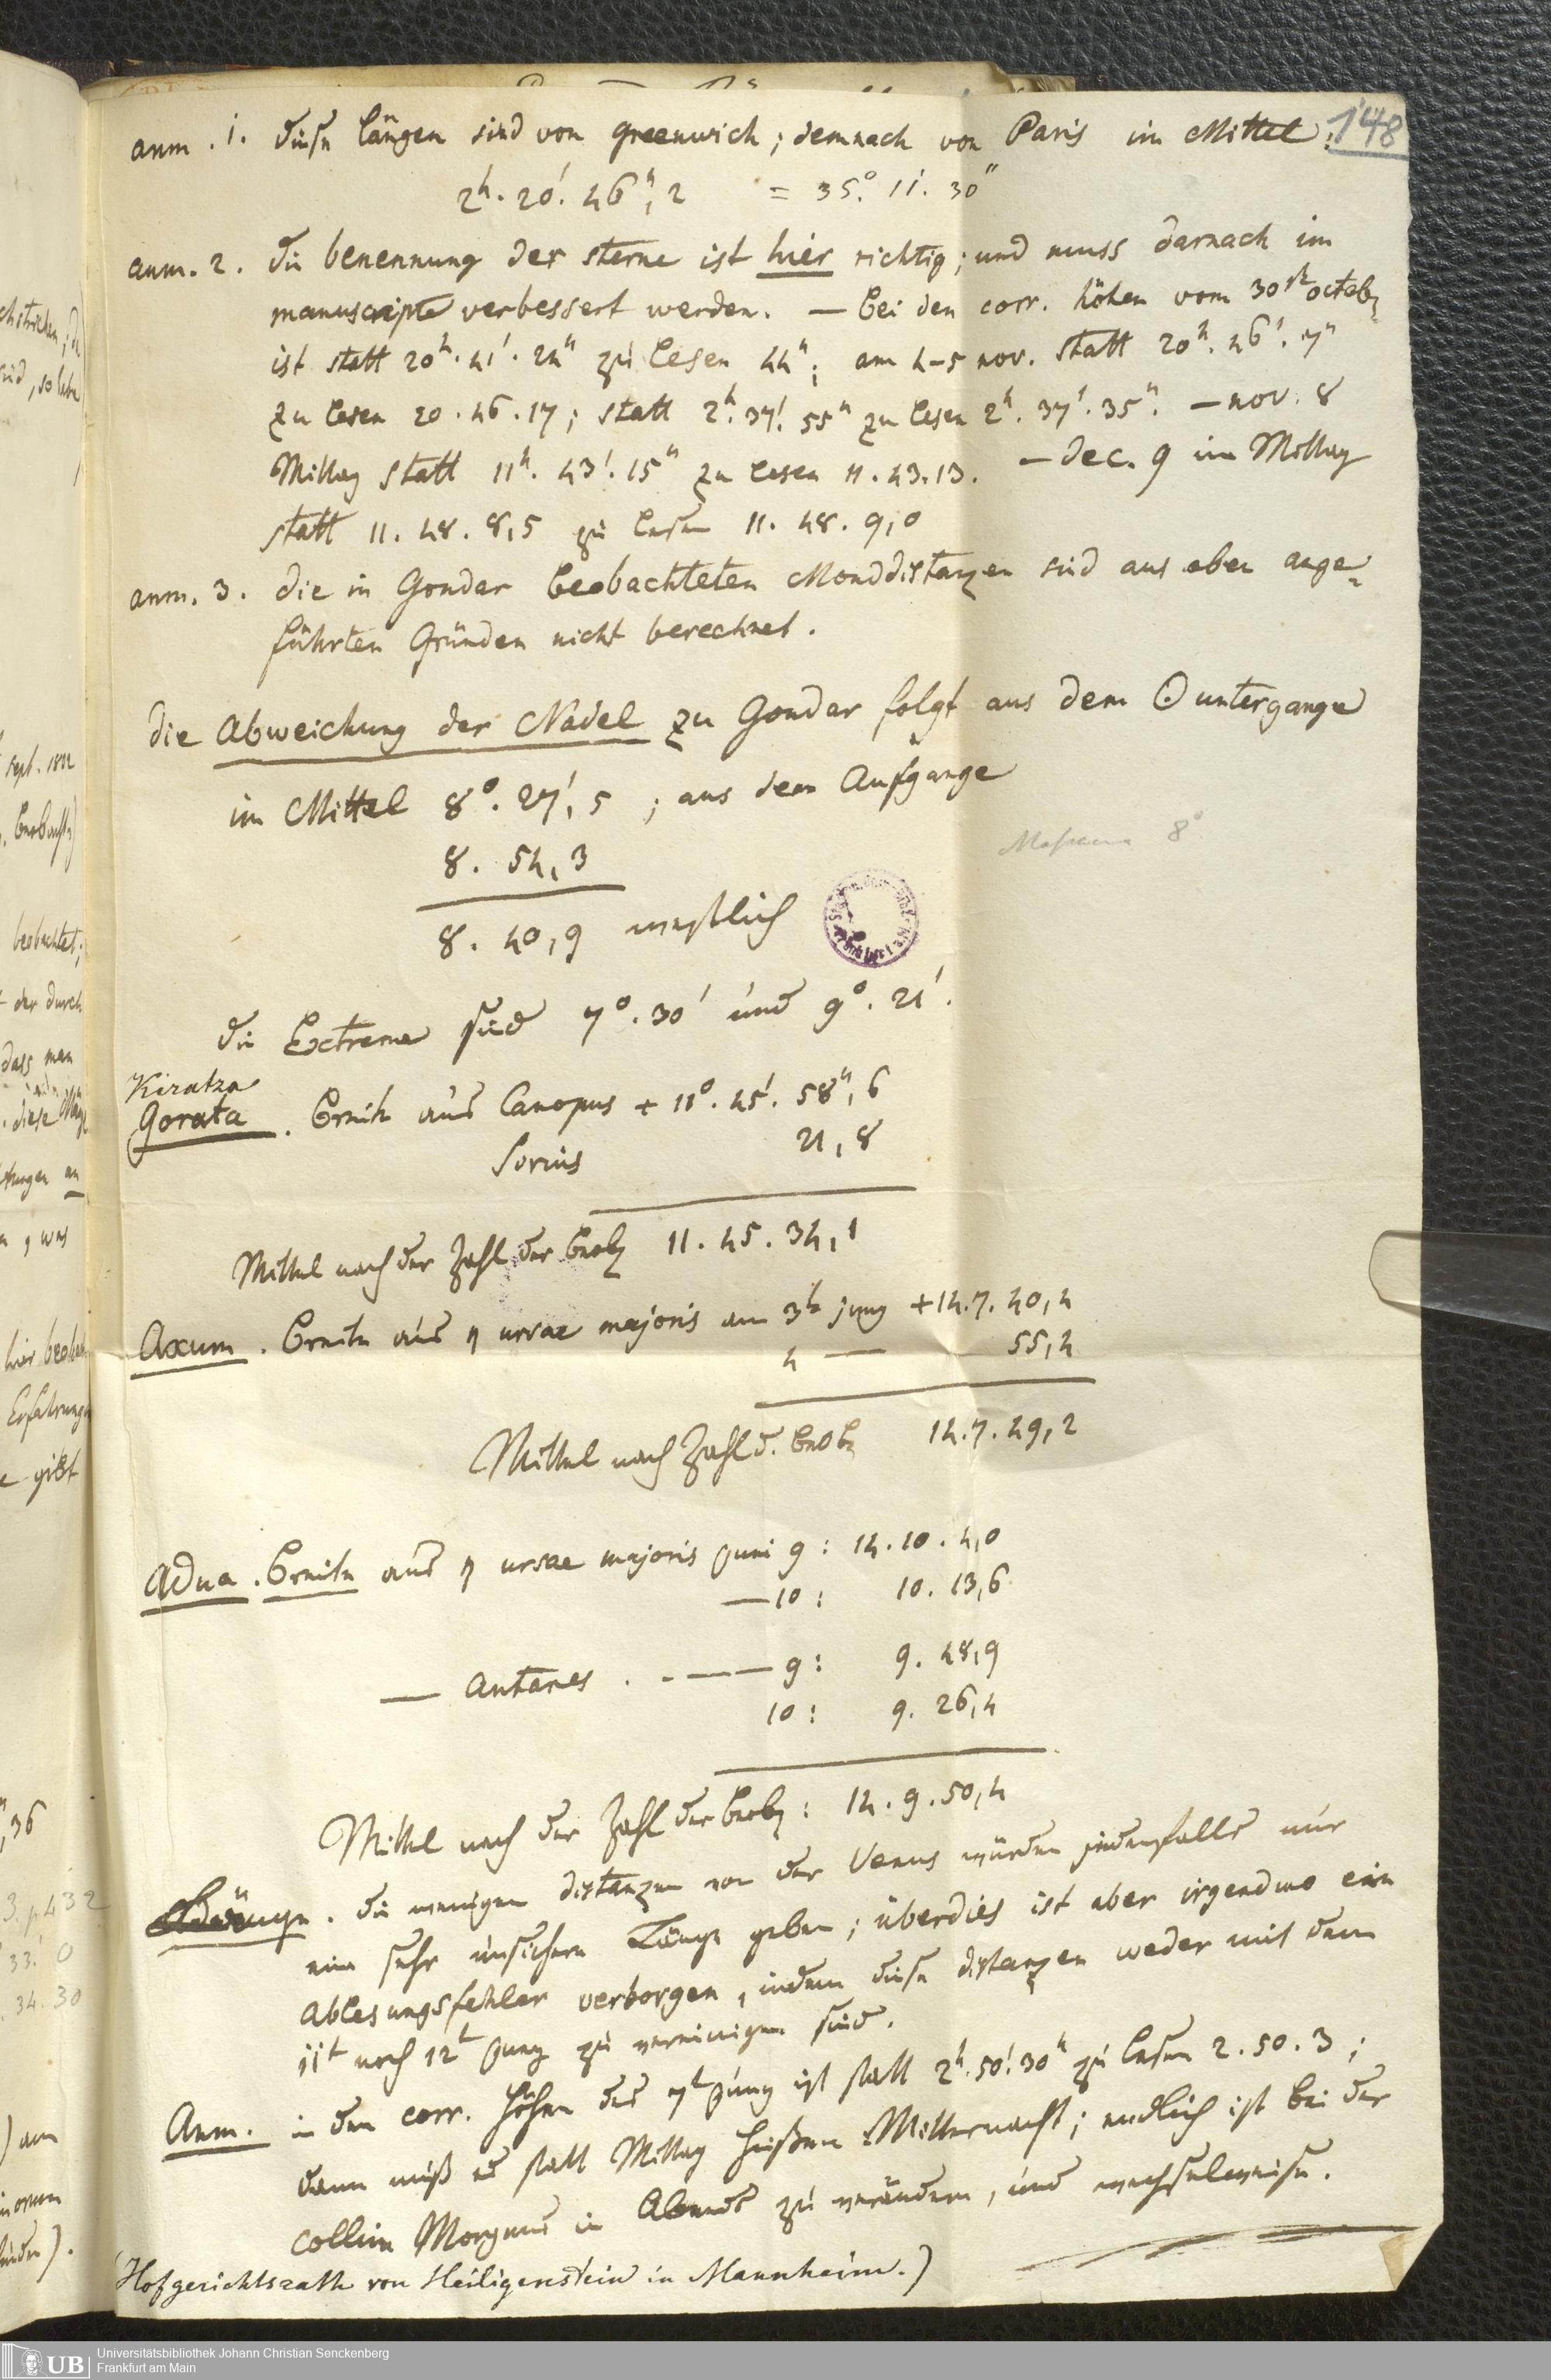 148
anm. 1. diese längen sind von Greenwich; demnach von Paris im Mittel:
2h. 20'. 46",2 = 35°. 11'. 30"
anm. 2. die benennung der sterne ist hier richtig; und muss darnach im
manuscripte verbessert werden. — bei den corr. höhen vom 30st octob
ist statt 20h. 41'. 24" zu lesen 44"; am 4-5 nov. statt 20h. 46'. 7"
zu lesen 20. 46. 17; statt 2h. 37'. 55" zu lesen 2h. 37'. 35". — nov. 8
Mittag statt 11h. 43'. 15" zu lesen 11. 43. 13. — dec. 9 im Mittag
statt 11. 48. 8,5 zu lesen 11. 48. 9,0
anm. 3. die in Gondar beobachteten Monddistanzen sind aus oben ange-
führten Gründen nicht berechnet.
die Abweichung der Nadel zu Gondar folgt aus dem ☉ untergange
im Mittel 8°. 27',5; aus dem Aufgange
8. 54,3
8. 40,9 westlich
8°
die Extreme sind 7°. 30' und 9°. 21'.
Kiratza
Gorata. Breite aus Canopus + 11°. 45'. 58",6
Sirius 21,8
Mittel nach der Zahl der beob 11. 45. 34,1
Axum. Breite aus η ursae majoris am 3t juny + 14. 7. 40,4
4 — 55,4
Mittel nach Zahl d. beob 14. 7. 49,2
Adua. Breite aus η ursae majoris Juni 9: 14. 10. 4,0
— 10: 10. 13,6
— Antares . - — — 9: 9. 48,9
10: 9. 26,4
Mittel nach der Zahl der beob: 14. 9. 50,4
Länge. die wenigen distanzen von der Venus würden jedenfalls nur
eine sehr unsichere Länge geben; überdies ist aber irgendwo ein
Ablesungsfehler verborgen, indem diese distanzen weder mit dem
11t noch 12t Juny zu vereinigen sind.
Anm. in den corr. Höhen des 7t Juny ist statt 2h. 50'. 30" zu lesen 2. 50. 3;
dann muß es statt Mittag heißen Mitternacht; endlich ist bei der
collim Morgens in Abends zu verändern, und wechselsweise.
(Hofgerichtsrath von Heiligenstein in Mannheim.)
sept. 1832
beobachtet;
der durch
dass man
diese
was
hier
gibt
,36
3. p 432
33. 0
34. 30
) am
UB
Universitätsbibliothek Johann Christian Senckenberg
Frankfurt am Main